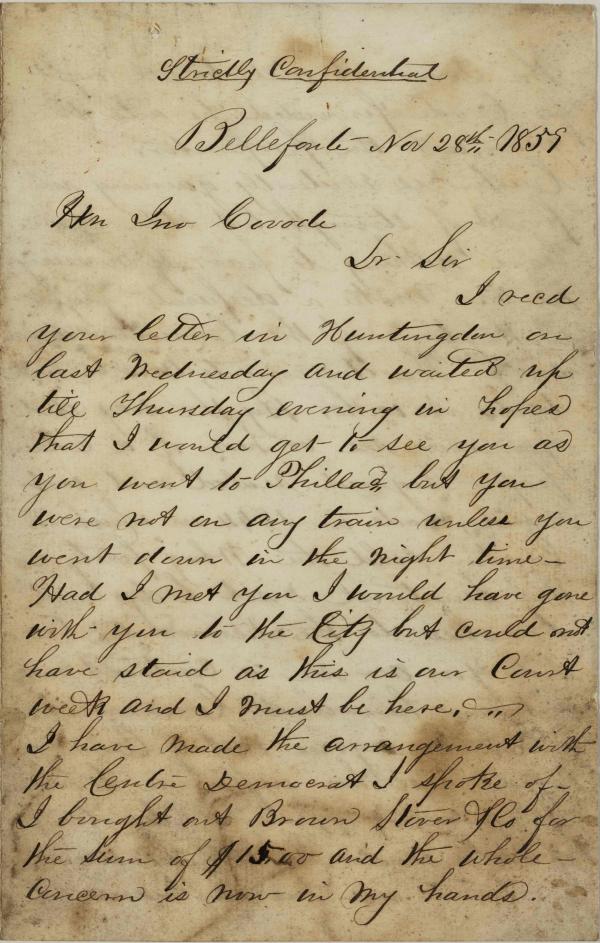 Strictly Confidential
Bellefonte Nov 28th 1859
Hon Jno Covode
Dr. Sir
I recd
your letter in Huntingdon on
last Wednesday and waited up
till Thursday evening in hopes
that I would get to see you as
you went to Philla but you
were not on any train unless you
went down in the night time—
Had I met you I would have gone
with you to the City but could not
have staid as this is our Court
week and I must be here.
I have made the arrangement with
the Centre Democrat I spoke of—
I bought out Brown Stover & Co for
the sum of $1500 and the whole—
Concern is now in my hands.